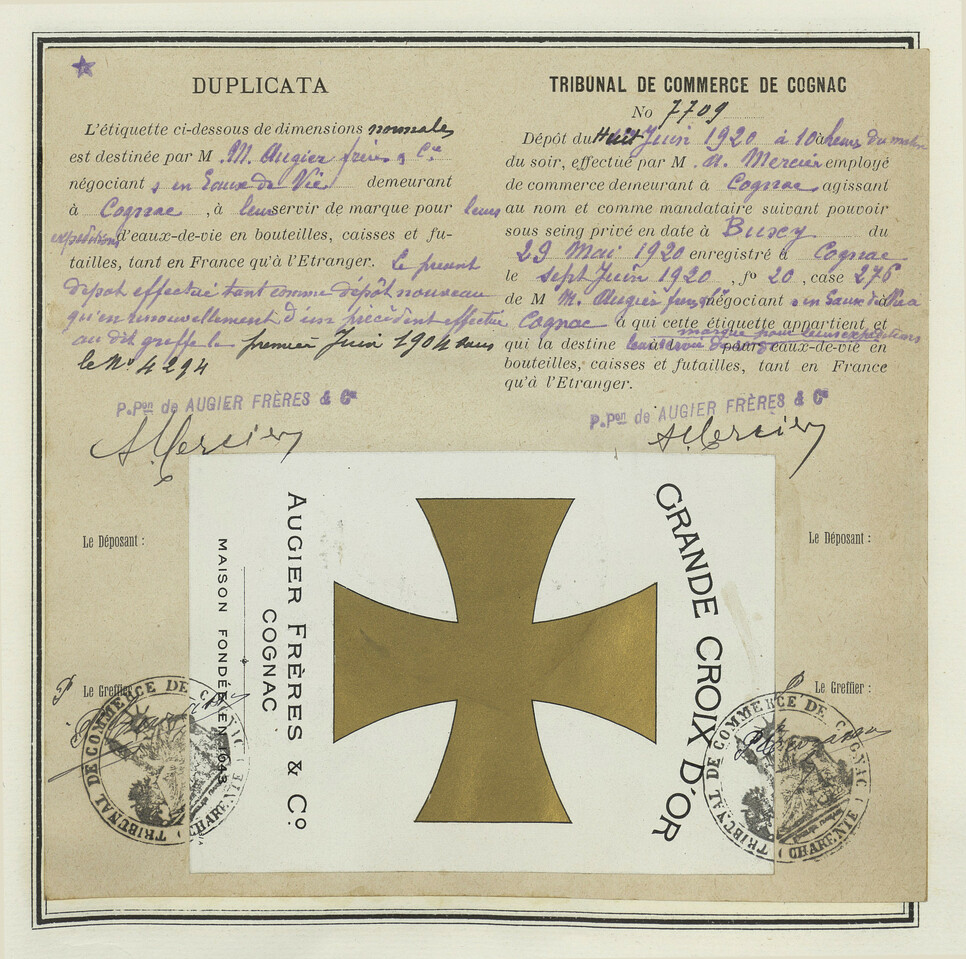 DUPLICATA
L'étiquette ci-dessous de dimensions normales
est destinée par M. M. Augier frères & Cie
négociants en Eaux de Vie demeurant
à Cognac, à leur servir de marque pour leurs
expéditions d'eaux-de-vie en bouteilles, caisses et fu-
tailles, tant en France qu'à l'Etranger. Le présent
dépôt effectué tant comme dépôt nouveau
qu'en renouvellement d'un précédent effectué
au dit greffe le premier Juin 1904 sous
le No 4294
P.Pon de AUGIER FRÈRES & Cie
A. Mercier
Le Déposant :
Le Greffier :
TRIBUNAL DE COMMERCE DE COGNAC
No 7709
Dépôt du Huit Juin 1920 à 10 heures du matin
du soir, effectué par M. A. Mercier employé
de commerce demeurant à Cognac, agissant
au nom et comme mandataire suivant pouvoir
sous seing privé en date à Buxcy du
29 Mai 1920 enregistré à Cognac
le sept Juin 1920, fo 20, case 276
de M M. Augier frères négociants en Eaux de Vie à
Cognac à qui cette étiquette appartient et
qui la destine à marque pour leurs expéditions
pour eaux-de-vie en
bouteilles, caisses et futailles, tant en France
qu'à l'Etranger.
P.Pon de AUGIER FRÈRES & Cie
A. Mercier
Le Déposant :
Le Greffier :
GRANDE CROIX D'OR
AUGIER FRÈRES & Co
COGNAC
MAISON FONDÉE EN 1643
TRIBUNAL DE COMMERCE DE COGNAC (CHARENTE)
TRIBUNAL DE COMMERCE DE COGNAC (CHARENTE)